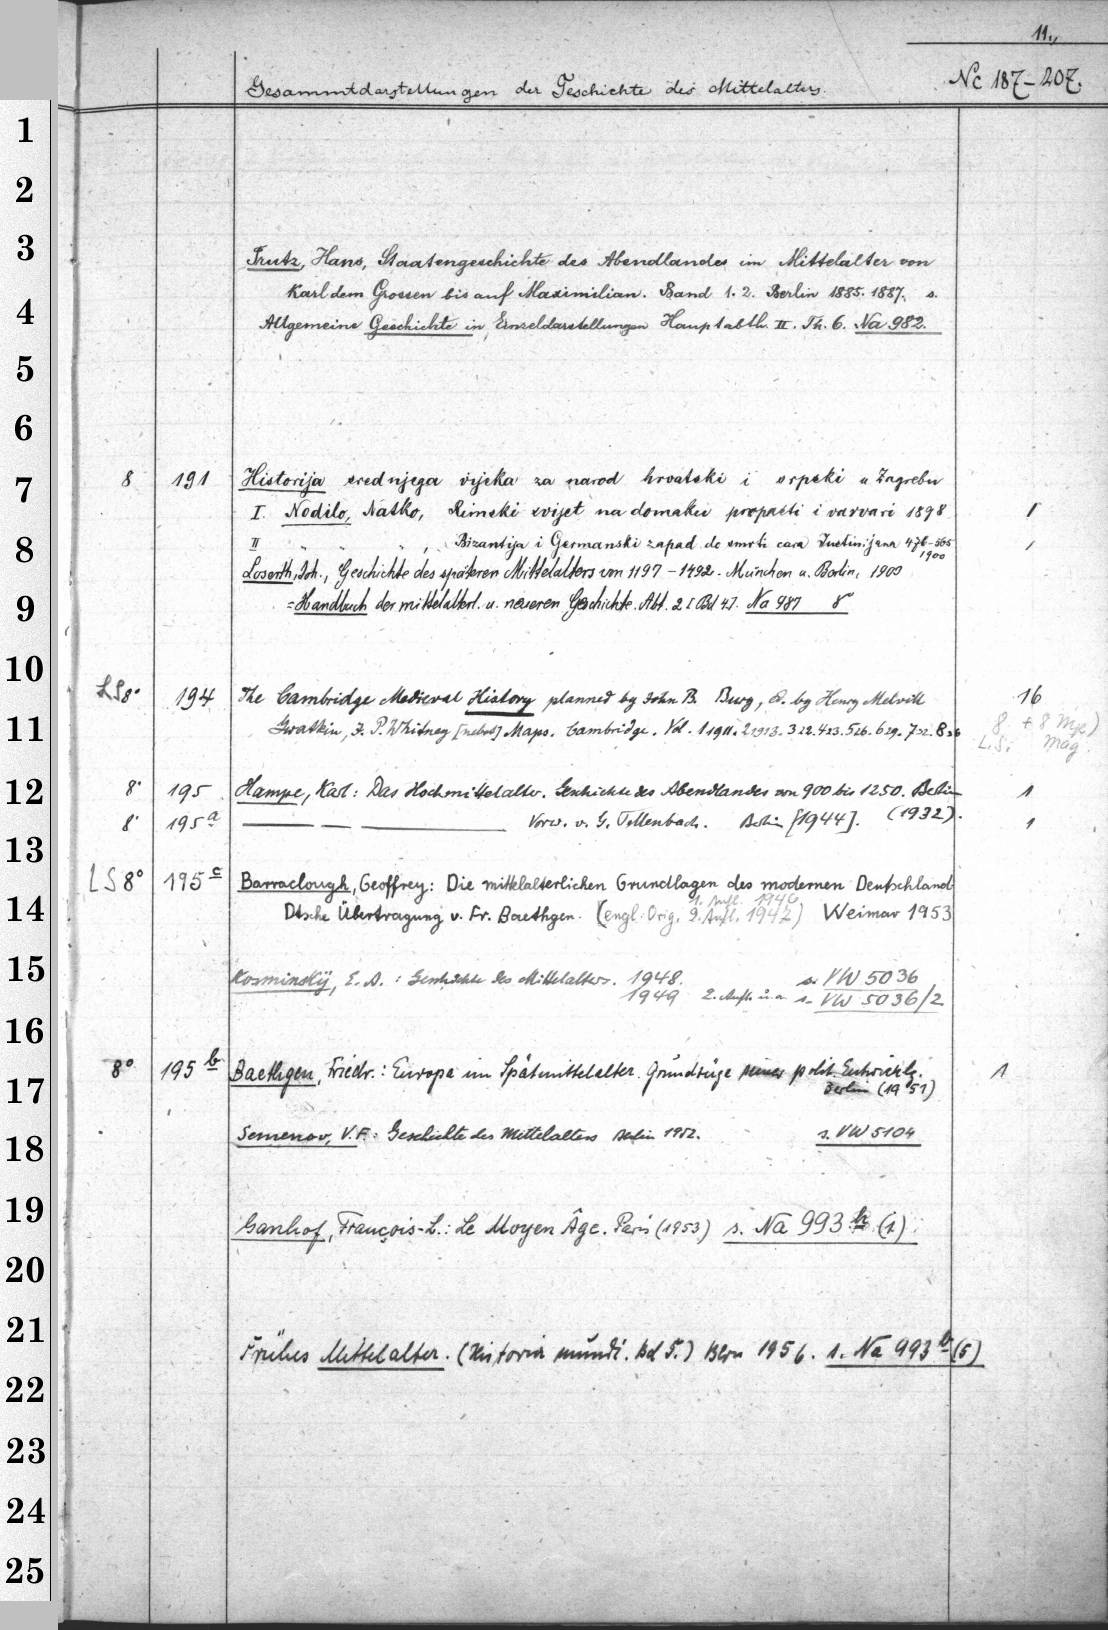 11.,
Gesammtdarstellungen der Geschichte des Mittelalters. Nc 187-207.
1
2
3
Prutz, Hans, Staatengeschichte des Abendlandes im Mittelalter von
Karl dem Grossen bis auf Maximilian. Band 1. 2. Berlin 1885. 1887. s.
4
Allgemeine Geschichte in Einzeldarstellungen Hauptabth. II. Th. 6. Na 982.
5
6
7
8 191 Historija srednjega vijeka za narod hrvatski i srpski u Zagrebu
I. Nodilo, Natko, Rimski svijet na domaku propasti i varvari 1898 1
8
II " " " , Bizantija i Germanski zapad do smrti cara Justinijana 476-565 1
1900
Loserth, Joh., Geschichte des späteren Mittelalters von 1197-1492. München u. Berlin, 1903
9
= Handbuch der mittelalterl. u. neueren Geschichte. Abt. 2 [Bd 4]. Na 987 8°
10
LS 8° 194 The Cambridge Medieval History planned by John B. Bury, ed. by Henry Melvill 16
11
Gwatkin, J. P. Whitney [nebst] Maps. Cambridge. Vol. 1 1911. 2 1913. 3 22. 4 23. 5 26. 6 29. 7 32. 8 36
8 + 8 Mge)
L.S. Mag.
12
8° 195 Hampe, Karl: Das Hochmittelalter. Geschichte des Abendlandes von 900 bis 1250. Berlin 1
(1932).
8° 195 a ——— — ——— Vorw. v. G. Tellenbach. Berlin [1944]. 1
13
LS 8° 195 c Barraclough, Geoffrey: Die mittelalterlichen Grundlagen des modernen Deutschland
14
1. Aufl. 1946
Dtsche Übertragung v. Fr. Baethgen. (engl. Orig. 2. Aufl. 1947) Weimar 1953
15
Kosminskij, E. A.: Geschichte des Mittelalters. 1948. s. VW 5036
1949 2. Aufl. u.a. s. VW 5036/2
16
8° 195 b Baethgen, Friedr.: Europa im Spätmittelalter. Grundzüge seiner polit. Entwicklg. 1
17
Berlin (1951)
18
Semenov, V.F.: Geschichte des Mittelalters Berlin 1952. s. VW 5104
19
Ganhof, François-L.: Le Moyen Âge. Paris (1953) s. Na 993 h (1)
20
21
Frühes Mittelalter. (Historia mundi. Bd 5.) Bern 1956. s. Na 993 b (5)
22
23
24
25